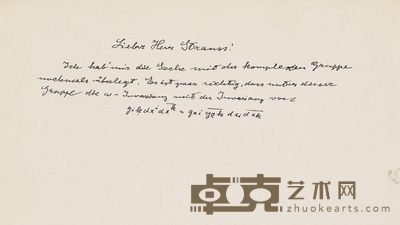 Lieber Herr Strauss!
Ich hab' mir die Sache mit der komplexen Gruppe
nochmals überlegt. Es ist zwar richtig, dass unter dieser
Gruppe die w-Invarianz mit der Invarianz von
卓克艺术网
zhuokearts.com